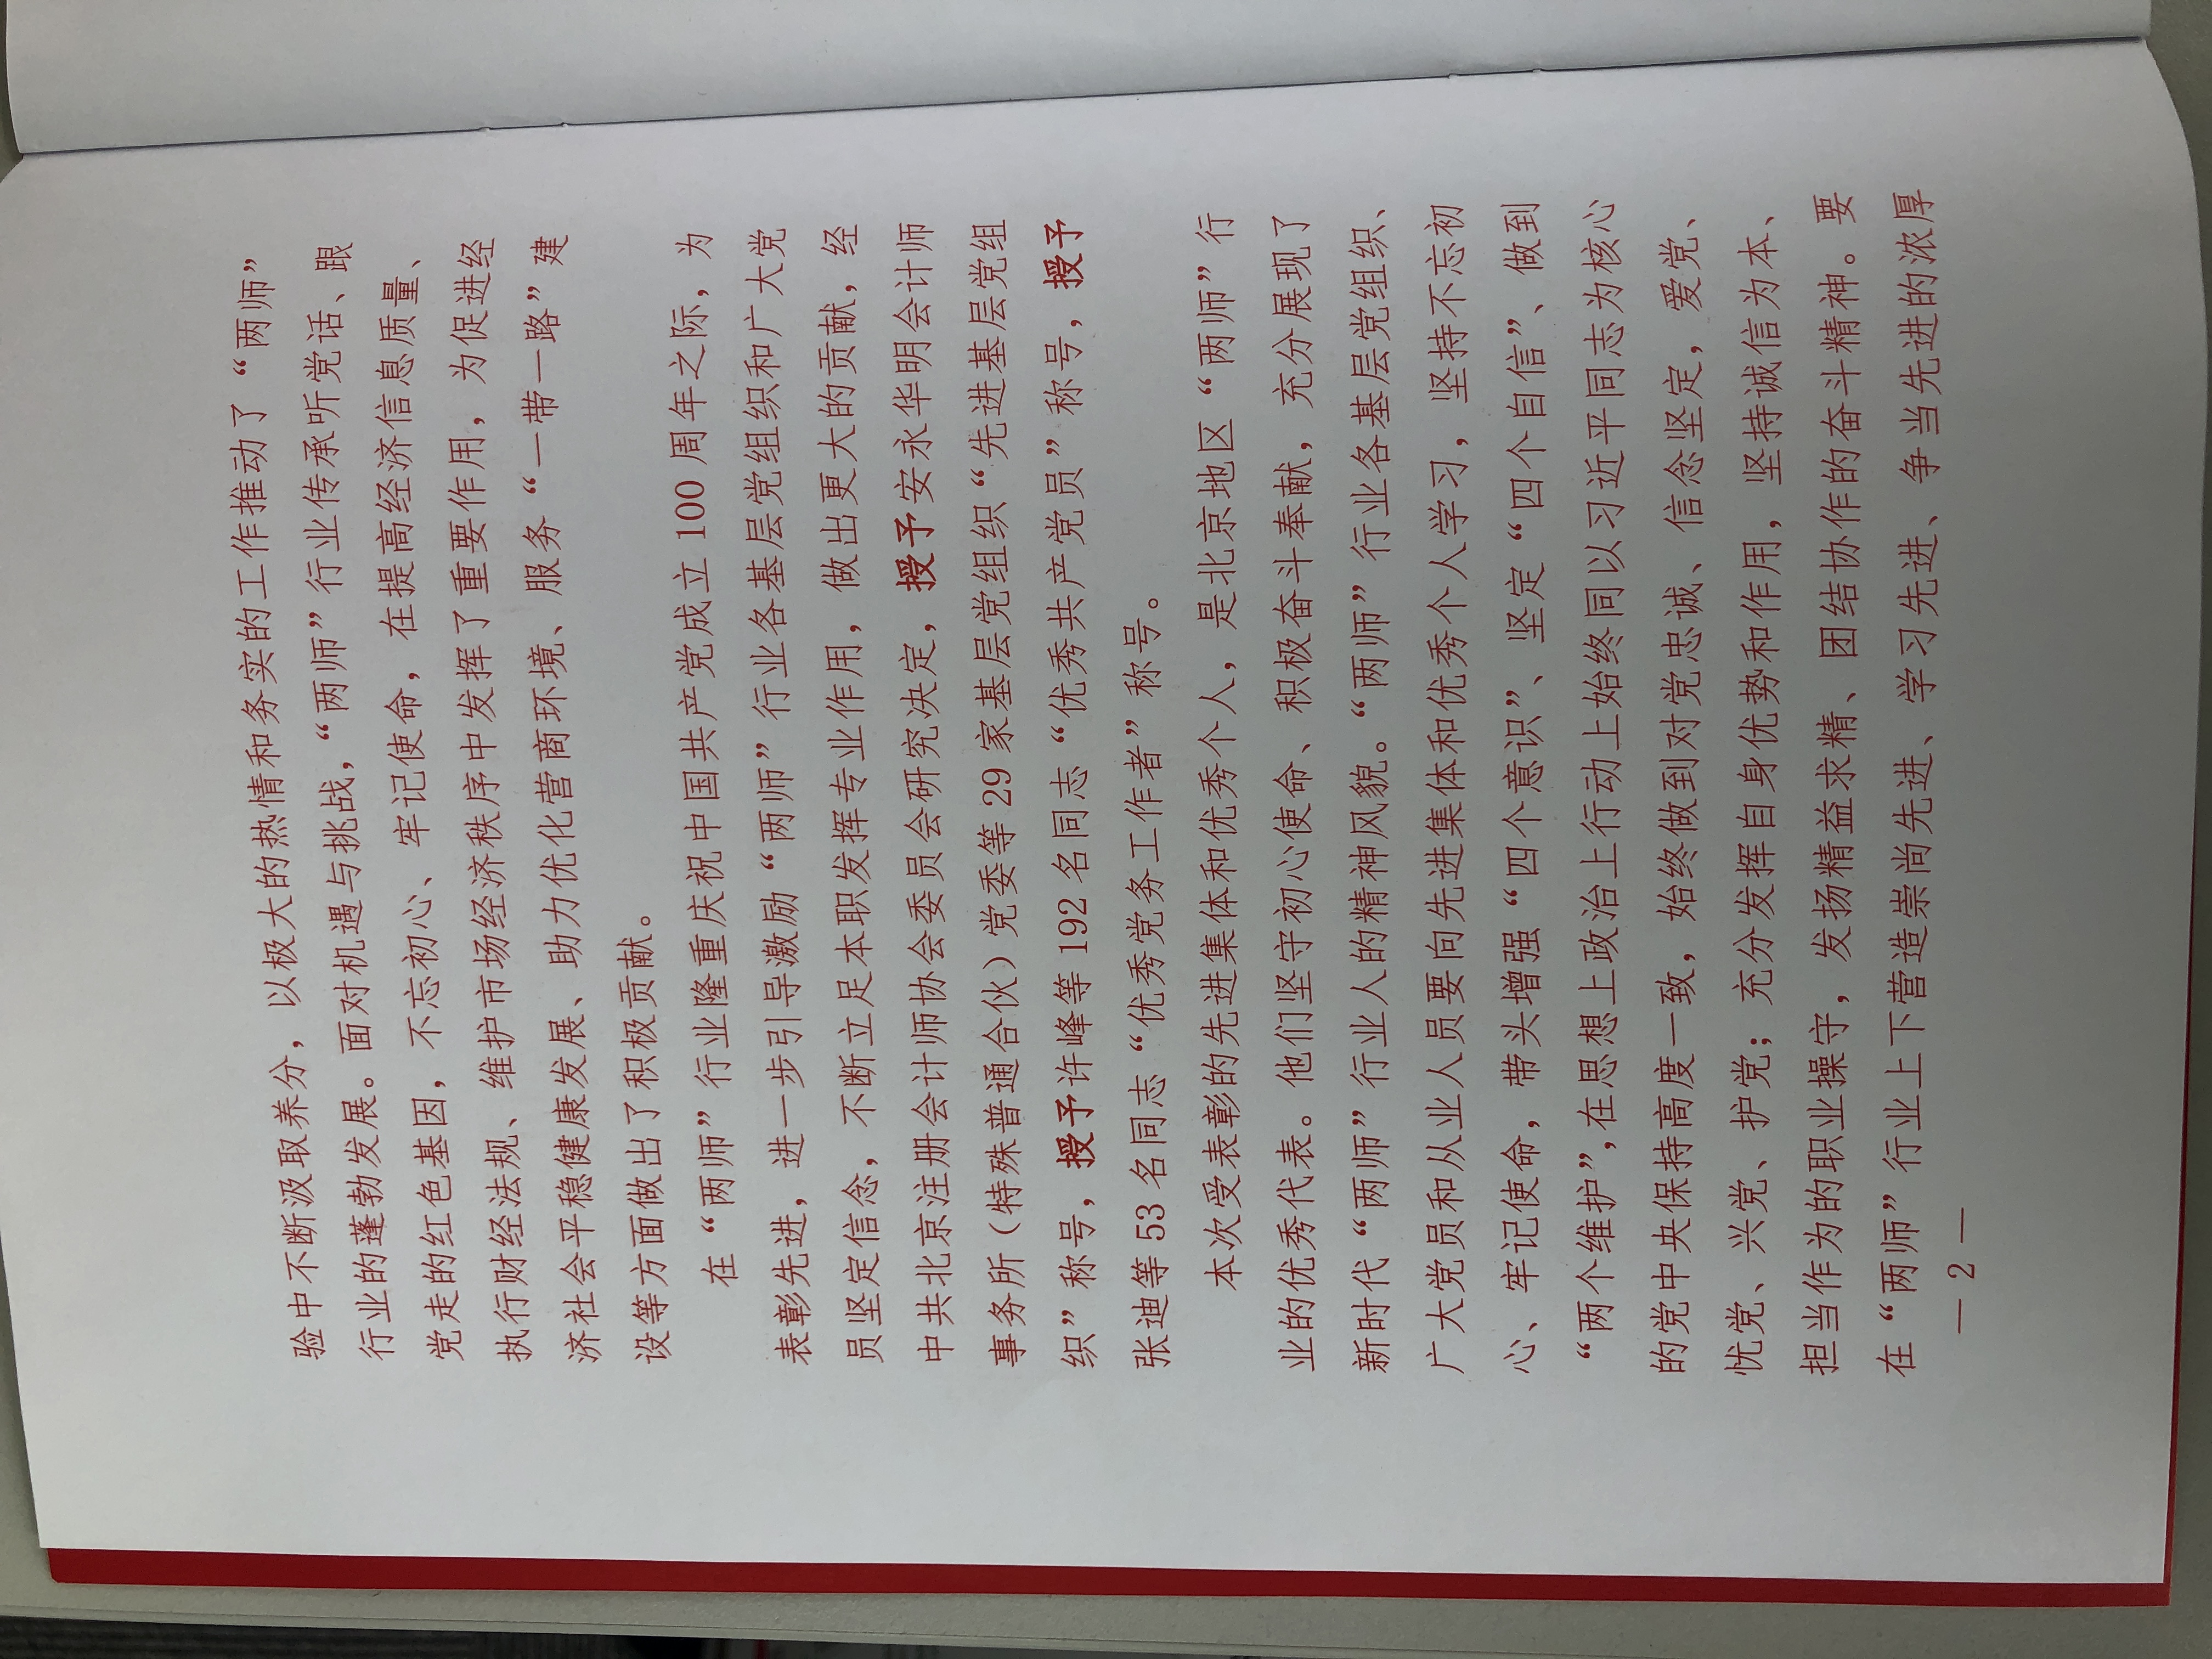 验中不断汲取养分，以极大的热情和务实的工作推动了“两师”
行业的蓬勃发展。面对机遇与挑战，“两师”行业传承听党话、跟
党走的红色基因，不忘初心、牢记使命，在提高经济信息质量、
执行财经法规、维护市场经济秩序中发挥了重要作用，为促进经
济社会平稳健康发展、助力优化营商环境、服务“一带一路”建
设等方面做出了积极贡献。
在“两师”行业隆重庆祝中国共产党成立100周年之际，为
表彰先进，进一步引导激励“两师”行业各基层党组织和广大党
员坚定信念，不断立足本职发挥专业作用，做出更大的贡献，经
中共北京注册会计师协会委员会研究决定，授予安永华明会计师
事务所（特殊普通合伙）党委等29家基层党组织“先进基层党组
织”称号，授予许峰等192名同志“优秀共产党员”称号，授予
张迪等53名同志“优秀党务工作者”称号。
本次受表彰的先进集体和优秀个人，是北京地区“两师”行
业的优秀代表。他们坚守初心使命、积极奋斗奉献，充分展现了
新时代“两师”行业人的精神风貌。“两师”行业各基层党组织、
广大党员和从业人员要向先进集体和优秀个人学习，坚持不忘初
心、牢记使命，带头增强“四个意识”、坚定“四个自信”、做到
“两个维护”，在思想上政治上行动上始终同以习近平同志为核心
的党中央保持高度一致，始终做到对党忠诚、信念坚定，爱党、
忧党、兴党、护党；充分发挥自身优势和作用，坚持诚信为本、
担当作为的职业操守，发扬精益求精、团结协作的奋斗精神。要
在“两师”行业上下营造崇尚先进、学习先进、争当先进的浓厚
— 2 —